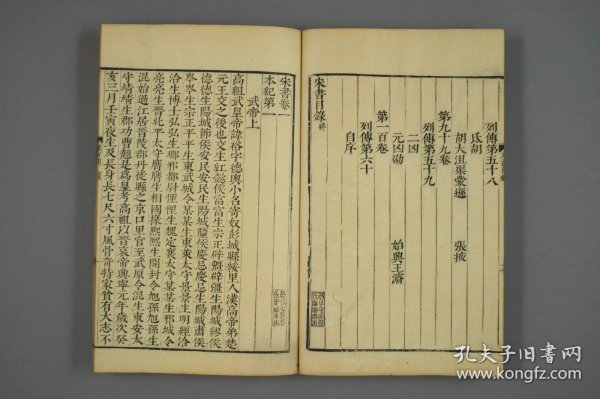 列傳第五十八
氐胡
胡大沮渠蒙遜　張掖
第九十九卷
列傳第五十九
二凶
元凶劭　始興王濬
第一百卷
列傳第六十
自序
宋書目錄終
宋書卷一
本紀第一
武帝上
高祖武皇帝諱裕字德輿小名寄奴彭城縣綏里人漢高帝弟楚
元王交之後也交生紅懿侯富富生宗正辟彊辟彊生陽城繆侯
德德生陽城節侯安民安民生陽城釐侯慶忌慶忌生陽城肅侯
岑岑生宗正平平生東武城令某某生東萊太守景景生明經洽
洽生博士弘弘生琅邪都尉悝悝生魏定襄太守某某生邪城令
亮亮生晉北平太守膺膺生相國掾熙熙生開封令旭孫旭孫生
混始過江居晉陵郡丹徒縣之京口里官至武原令混生東安太
守靖靖生郡功曹翹是爲皇考高祖以晉哀帝興寧元年歲次癸
亥三月壬寅夜生及長身長七尺六寸風骨奇特家貧有大志不
孔夫子旧书网
www.kongfz.com